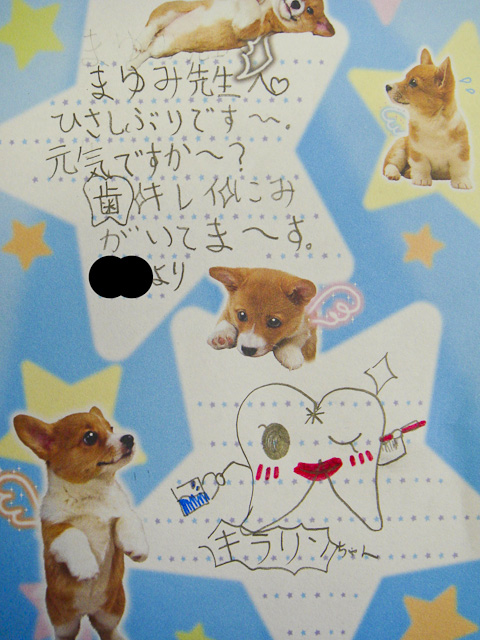 まゆみ先生へ♡
ひさしぶりです〜。
元気ですか〜?
歯☆キレイ☆にみ
がいてま〜す。
より
キラリンちゃん